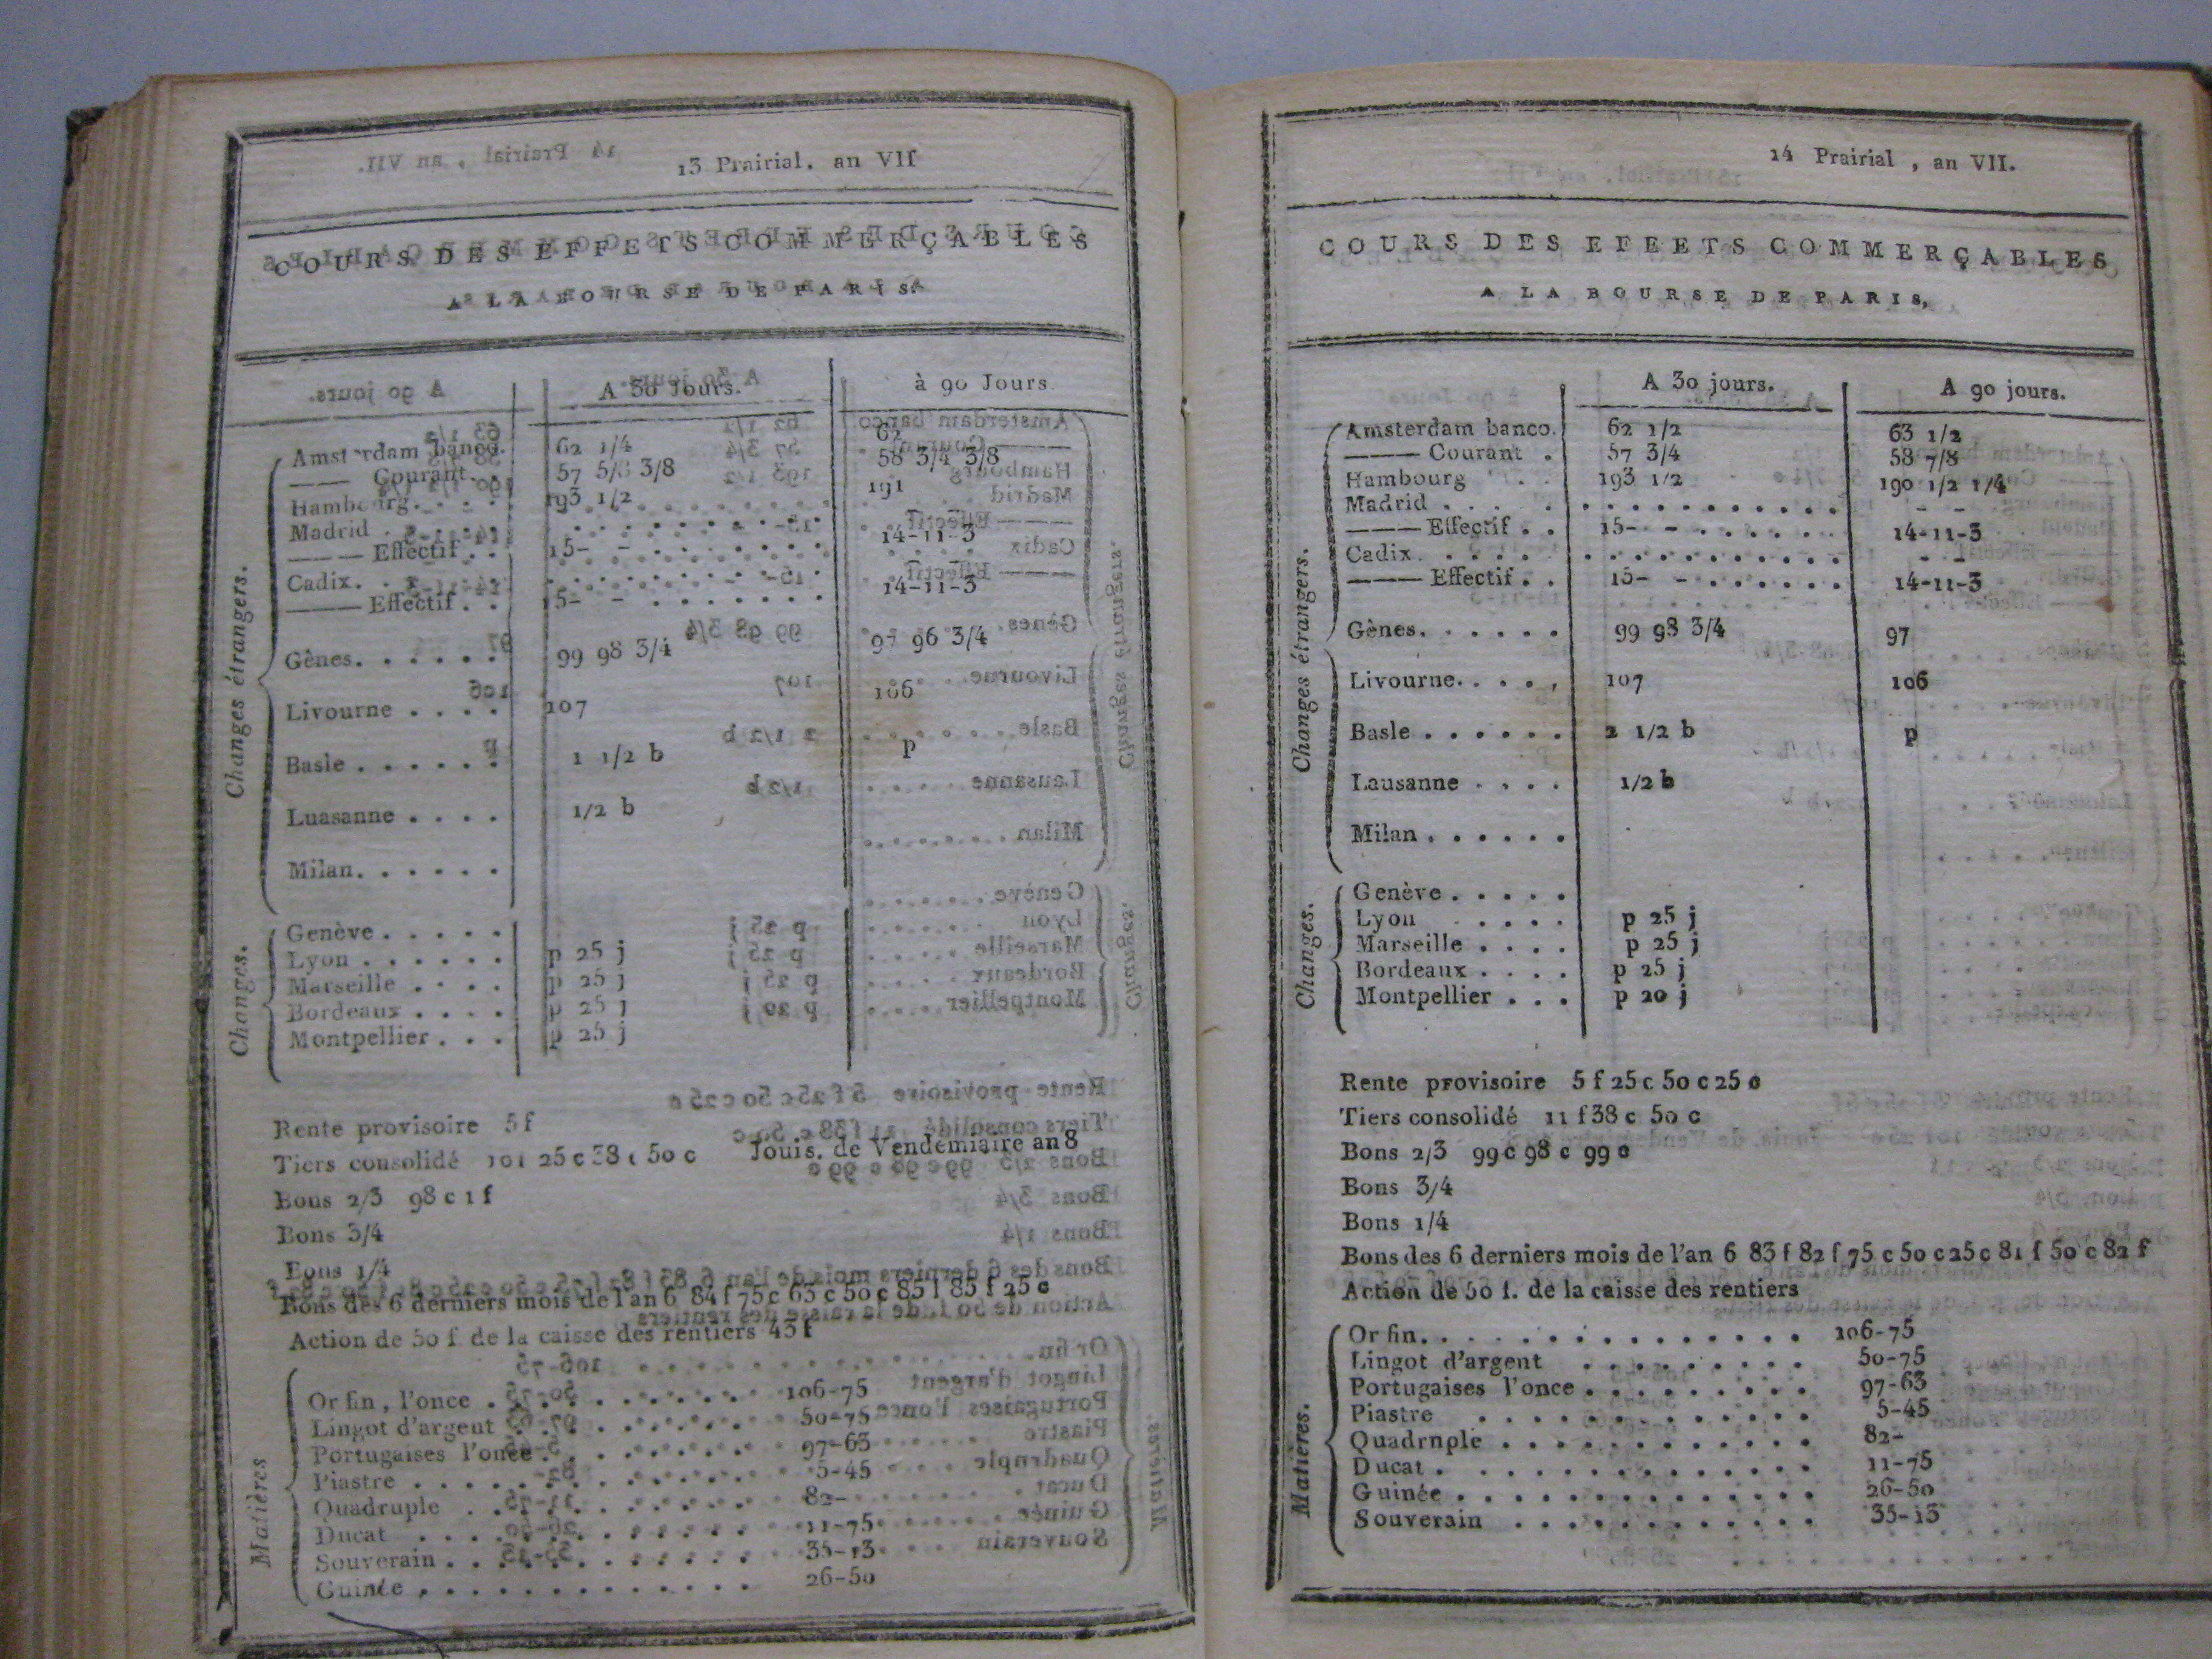 13 Prairial, an VII
COURS DES EFFETS COMMERÇABLES
A LA BOURSE DE PARIS.
A 30 Jours. à 90 Jours
Changes étrangers.
Amsterdam banco. 62 1/4 62
—— Courant. 57 5/8 3/8 58 3/4 3/8
Hambourg. . . . 193 1/2 191
Madrid . . . .
—— Effectif . . 15- - 14-11-3
Cadix. . . . .
—— Effectif . . 15- - 14-11-3
Gênes. . . . . . 99 98 3/4 97 96 3/4
Livourne . . . . 107 106
Basle . . . . . . 1 1/2 b p
Luasanne . . . . 1/2 b
Milan. . . . . .
Changes.
Genève . . . . .
Lyon . . . . . . p 25 j
Marseille . . . . p 25 j
Bordeaux . . . . p 25 j
Montpellier . . . p 25 j
Rente provisoire 5 f
Tiers consolidé 10f 25 c 38 c 50 c Jouis. de Vendemiaire an 8
Bons 2/3 98 c 1 f
Bons 3/4
Bons 1/4
Bons des 6 derniers mois de l'an 6 84 f 75 c 63 c 50 c 85 f 85 f 25 c
Action de 50 f de la caisse des rentiers 43 f
Matières
Or fin, l'once . . . . 106-75
Lingot d'argent . . . . 50-75
Portugaises l'once . . . . 97-63
Piastre . . . . 5-45
Quadruple . . . . 82-
Ducat . . . . 11-75
Souverain . . . . 35-13
Guinée . . . . 26-50
14 Prairial, an VII.
COURS DES EFEETS COMMERÇABLES
A LA BOURSE DE PARIS,
A 30 jours. A 90 jours.
Changes étrangers.
Amsterdam banco. 62 1/2 63 1/2
—— Courant . 57 3/4 58 7/8
Hambourg . . 193 1/2 190 1/2 1/4
Madrid . . . . - -
—— Effectif . . 15- - 14-11-3
Cadix. . . . . - -
—— Effectif . . 15- - 14-11-3
Gènes. . . . . . 99 98 3/4 97
Livourne. . . . , 107 106
Basle . . . . . . 2 1/2 b p
Lausanne . . . . 1/2 b
Milan . . . . . .
Changes.
Genève . . . . .
Lyon . . . . p 25 j
Marseille . . . . p 25 j
Bordeaux . . . . p 25 j
Montpellier . . . p 20 j
Rente provisoire 5 f 25 c 50 c 25 c
Tiers consolidé 11 f 38 c 50 c
Bons 2/3 99 c 98 c 99 c
Bons 3/4
Bons 1/4
Bons des 6 derniers mois de l'an 6 83 f 82 f 75 c 50 c 25 c 81 f 50 c 82 f
Action de 50 f. de la caisse des rentiers
Matières.
Or fin. . . . . 106-75
Lingot d'argent . . . . 50-75
Portugaises l'once . . . . 97-63
Piastre . . . . 5-45
Quadrnple . . . . 82-
Ducat . . . . 11-75
Guinée . . . . 26-50
Souverain . . . . 35-13